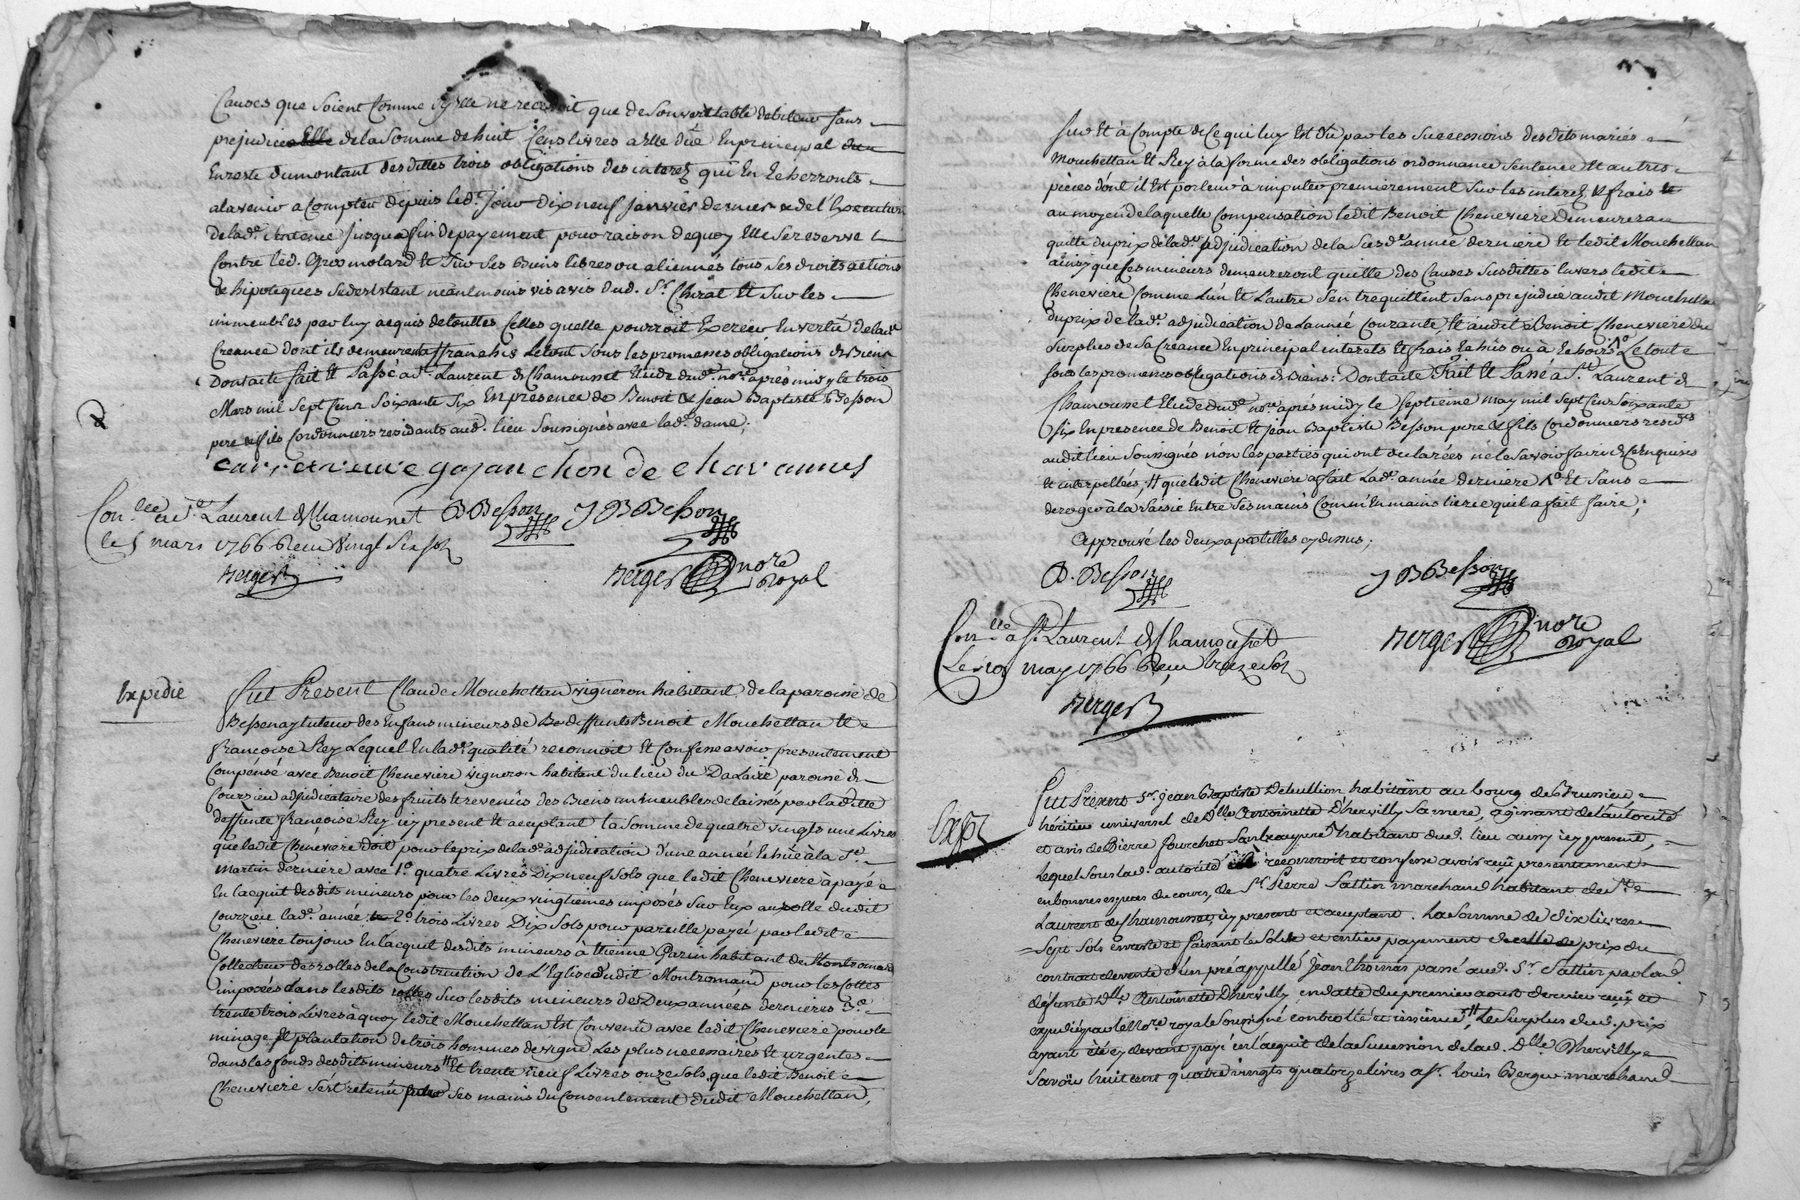 Causes que soient Comme sy elle ne recevoit que de son veritable debiteur sans
prejudice de la somme de huit Cens livres a elle düe En principal
En reste du montant des dittes trois obligations des interez qui En Echerronts
a l'avenir a Compter depuis led. Jour dix neuf Janvier dernier & de l'Execution
de lad.e Sentence Jusqu'a fin de payement pour raison de quoy Elle se reserve
Contre led. Gros molard Et sur ses Biens libres ou aliennés tous ses droits actions
& hipoteques se desistant néanlmoins vis a vis dud. Sr. Chirat Et sur les
immeubles par luy acquis de touttes Celles quelle pourroit Exercer En vertu de lad.
Creance dont ils demeurent affranchis Le tout sous les promesses obligations & Biens
Dont acte fait Et Passé a St. Laurent de Chamousset Etude dud. nore. après midy le trois
Mars mil sept Cens soixante six En presence de Benoit & Jean Baptiste Besson
pere & fils Cordonniers residants aud. lieu soussignés avec lad.e dame;
gajanchon de chavannes
Con.llé a St. Laurent de Chamousset
B Besson J B Besson
le 5 mars 1766 Recu Vingt Six sols
Berger
Berger nore Royal
Expedié
Fut Present Claude Mouchettan vigneron habitant de la paroisse de
Bessenay tuteur des Enfans mineurs de deffunts Benoit Mouchettan Et
françoise Rey Lequel En lad.e qualité reconnoit Et Confesse avoir presentement
Compensé avec Benoit Cheneviere vigneron habitant du lieu du paroisse de
Courzieu adjudicataire des fruits & revenus des Biens immeubles delaissés par laditte
deffunte françoise Rey icy present & acceptant la somme de quatre vingts une Livres
que ledit Cheneviere doit pour le prix de lad.e adjudication d'une année Echüe à la St.
Martin derniere avec 1.o quatre Livres Dix neuf Sols que ledit Cheneviere à payé
En l'acquit desdits mineurs pour les deux vingtiemes imposés sur Eux au rolle dudit
Courzieu lad.e année 2.o trois Livres Dix Sols pour pareille payée par ledit
Cheneviere toujour En l'acquit desdits mineurs à Etienne habitant de Montromand
Collecteur des rolles de la Construction de L'Eglise dudit Montromand pour les Cottes
imposées dans lesdits rolles sur lesdits mineurs des Deux années dernieres 3.o
trente trois Livres à quoy ledit Mouchettan Est Convenu avec ledit Cheneviere pour le
minage & plantation de trois hommes de vigne Les plus necessaires Et urgentes
dans les fonds desdits mineurs Et trente neuf Livres onze Sols que ledit Benoit
Cheneviere s'est retenu ses mains du Consentement dudit Mouchettan,
sur Et à Compte de Ce qui luy Est dû par les successions desdits mariés
Mouchettan Et Rey à la forme des obligations ordonnance Sentence Et autres
pièces dont il Est porteur à imputer premierement sur les interez & frais
au moyen de laquelle Compensation ledit Benoit Cheneviere demeurera
quitte du prix de lad.e adjudication de la susd.e année derniere Et ledit Mouchettan
ainsy que ses mineurs demeureront quitte des Causes Susdittes Envers ledit
Cheneviere Comme l'un Et l'autre s'en trequittent sans prejudice audit Mouchettan
du prix de lad.e adjudication de l'année Courante Et audit Benoit Cheneviere du
Surplus de sa Creance En principal interets & frais Echus ou à Echoirs Le tout
sous les promesses obligations & Biens; Dont acte Fait Et Passé a St. Laurent de
Chamousset Etude dud. nore. après midy le septieme may mil sept Cens Soixante
six En presence de Benoit Et Jean Baptiste Besson pere & fils Cordonniers
audit lieu Soussignés non les parties qui ont declarées ne le savoir faire de Ce enquises
Et interpellées, # que ledit Cheneviere a fait lad.e année derniere Et Sans
deroger à la saisie Entre Ses mains Comm'En mains tierce qu'il a fait faire;
Approuvé les deux apostilles cy dessus;
B. Besson J B Besson
Con.llé a St. Laurent de Chamousset
Berger nore Royal
Le may 1766 Recu treize Sols
Berger
Exp
Fut Present Sr. Jean Baptiste Debullion habitant au bourg de
héritier universel de Dlle Antoinette Dhervilly Sa mere, agissant de l'autorité
et avis de Pierre Fourchet habitant dud. lieu aussy icy present,
Lequel sous lad. autorité reconnoit et confesse avoir reçu presentement
en bonnes especes du cours, de Sr. Pierre Sattin marchand habitant de St.
Laurent de Chamousset, icy present et acceptant. La somme de dix livres
Sept Sols En reste et faisant le Solde et entier payement de prix du
contrat de vente d'un pré appellé Jean Thomas passé aud. Sr. Sattin par lad.
défunte Dlle Antoinette Dhervilly, en datte du premier aoust dernier reçu et
expédié par le Nore. royal Soussigné controllé et insinué, Le Surplus dud. prix
ayant été cy devant payé en l'acquit de la Succession de lad. Dlle Dhervilly
Savoir huit cent quatre vingts quatorze livres a Sr. Louis Berger marchand